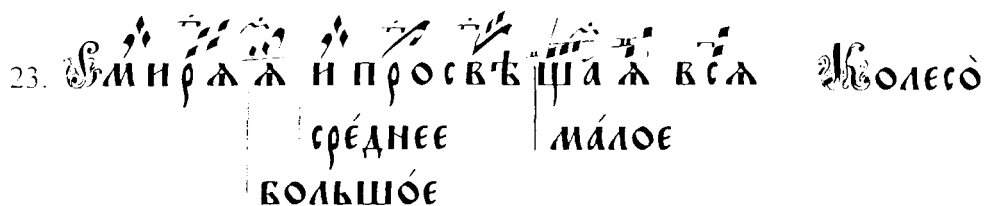 23. Смирѧѧ и҆ просвѣща́ѧ всѧ Колесо̀
сре́днее ма́лое
большо́е